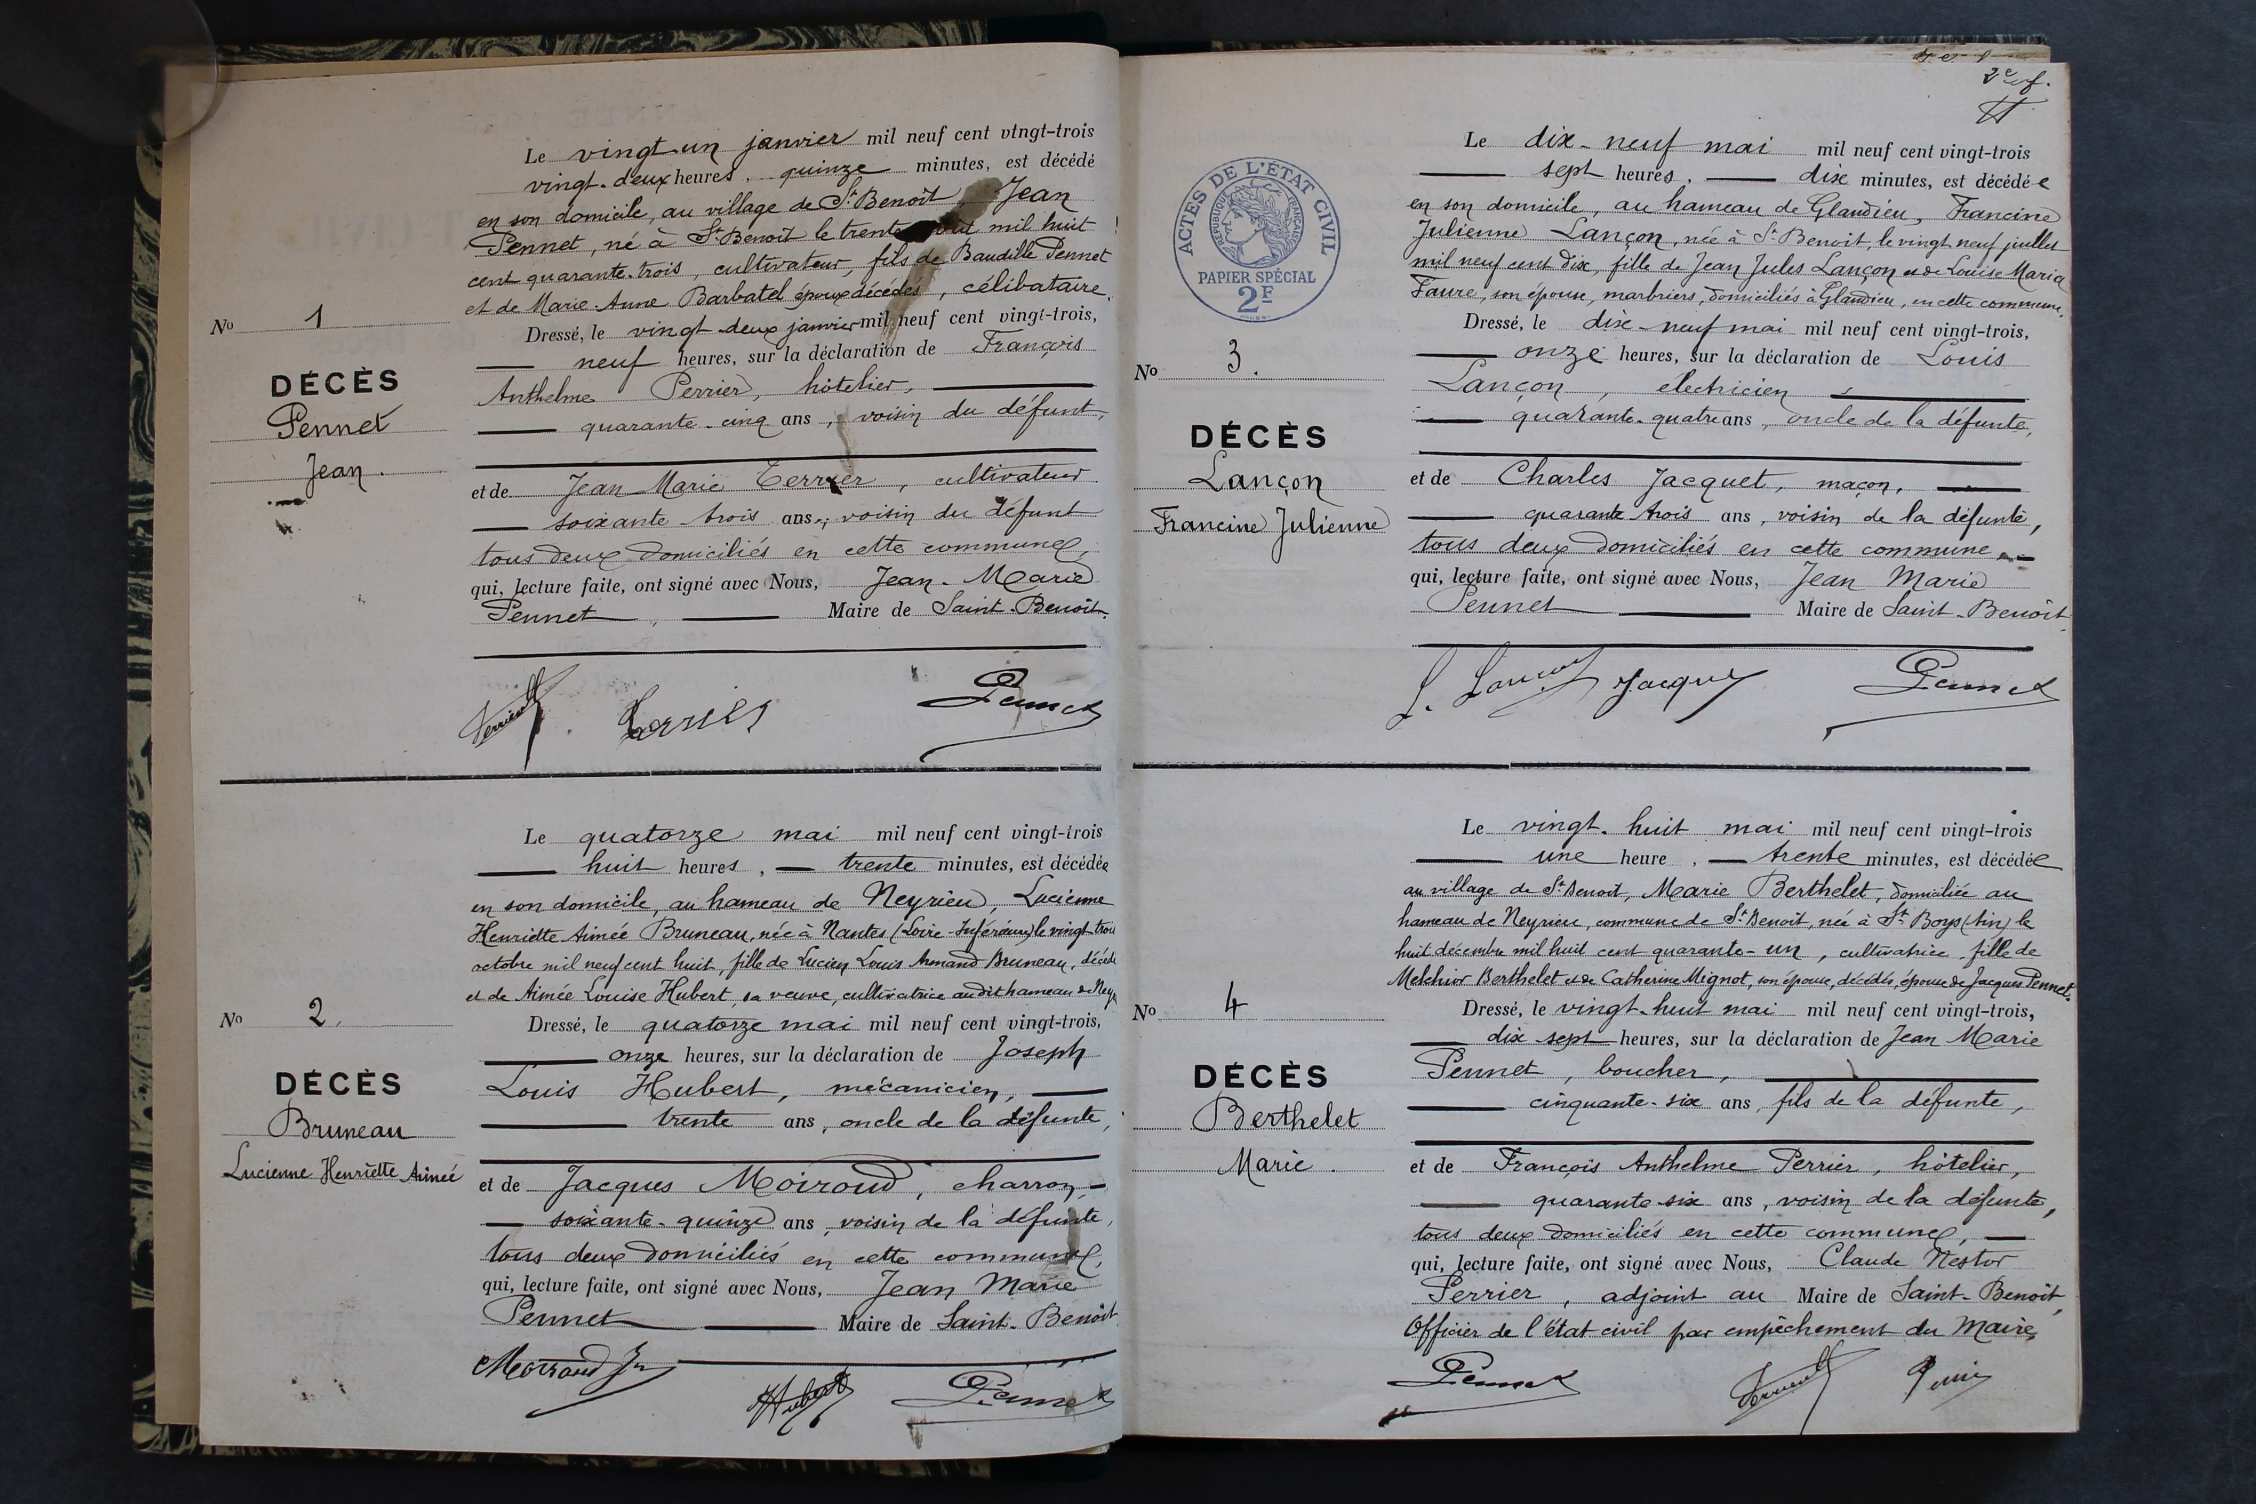 Le vingt-un janvier mil neuf cent vingt-trois
vingt-deux heures, quinze minutes, est décédé
en son domicile, au village de St Benoît Jean
Pennet, né à St Benoît le trente août mil huit
cent quarante-trois, cultivateur, fils de Baudille Pennet
et de Marie Anne Barbatel époux décédés, célibataire.
No 1
Dressé, le vingt-deux janvier mil neuf cent vingt-trois,
neuf heures, sur la déclaration de François
DÉCÈS
Anthelme Perrier, hôtelier,
Pennet
quarante-cinq ans, voisin du défunt,
Jean.
et de Jean Marie Terrier, cultivateur
soixante trois ans, voisin du défunt
tous deux domiciliés en cette commune,
qui, lecture faite, ont signé avec Nous, Jean-Marie
Pennet, Maire de Saint-Benoît.
Terrier
Pennet
Le quatorze mai mil neuf cent vingt-trois
huit heures, trente minutes, est décédée
en son domicile, au hameau de Neyrieu, Lucienne
Henriette Aimée Bruneau, née à Nantes (Loire-Inférieure) le vingt trois
octobre mil neuf cent huit, fille de Lucien Louis Armand Bruneau, décédé
et de Aimée Louise Hubert, sa veuve, cultivatrice audit hameau de Ney
No 2.
Dressé, le quatorze mai mil neuf cent vingt-trois,
onze heures, sur la déclaration de Joseph
DÉCÈS
Louis Hubert, mécanicien,
Bruneau
trente ans, oncle de la défunte,
Lucienne Henriette Aimée
et de Jacques Moiroud, charron,
soixante-quinze ans, voisin de la défunte,
tous deux domiciliés en cette commune,
qui, lecture faite, ont signé avec Nous, Jean Marie
Pennet Maire de Saint-Benoît
Moiroud Jn
Hubert
Pennet
2e f.
ACTES DE L'ÉTAT CIVIL
RÉPUBLIQUE FRANÇAISE
PAPIER SPÉCIAL
2F
Le dix-neuf mai mil neuf cent vingt-trois
sept heures, dix minutes, est décédée
en son domicile, au hameau de Glandieu, Francine
Julienne Lançon, née à St Benoit, le vingt neuf juillet
mil neuf cent dix, fille de Jean Jules Lançon et de Louise Maria
Faure, son épouse, marbriers, domiciliés à Glandieu, en cette commune.
Dressé, le dix-neuf mai mil neuf cent vingt-trois,
No 3.
onze heures, sur la déclaration de Louis
Lançon, électricien,
DÉCÈS
quarante-quatre ans, oncle de la défunte,
Lançon
et de Charles Jacquet, maçon,
Francine Julienne
quarante trois ans, voisin de la défunte,
tous deux domiciliés en cette commune,
qui, lecture faite, ont signé avec Nous, Jean Marie
Pennet Maire de Saint-Benoît
L. Lançon Jacquet Pennet
Le vingt-huit mai mil neuf cent vingt-trois
une heure, trente minutes, est décédée
au village de St Benoit, Marie Berthelet, domiciliée au
hameau de Neyrieu, commune de St Benoît, née à St Boys (Ain) le
huit décembre mil huit cent quarante-un, cultivatrice, fille de
Melchior Berthelet et de Catherine Mignot, son épouse, décédés, épouse de Jacques Pennet.
No 4
Dressé, le vingt-huit mai mil neuf cent vingt-trois,
dix sept heures, sur la déclaration de Jean Marie
DÉCÈS
Pennet, boucher,
Berthelet
cinquante-six ans, fils de la défunte,
Marie.
et de François Anthelme Perrier, hôtelier,
quarante-six ans, voisin de la défunte,
tous deux domiciliés en cette commune,
qui, lecture faite, ont signé avec Nous, Claude Nestor
Perrier, adjoint au Maire de Saint-Benoît,
Officier de l'état civil par empêchement du Maire,
Pennet